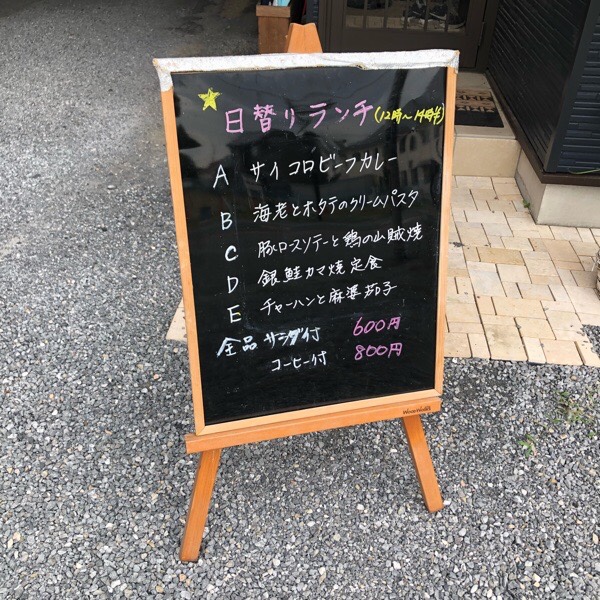 日替りランチ(12時～14時半)
A サイコロビーフカレー
B 海老とホタテのクリームパスタ
C 豚ロースソテーと鶏の山賊焼
D 銀鮭カマ焼定食
E チャーハンと麻婆茄子
全品 サラダ付 600円
コーヒー付 800円